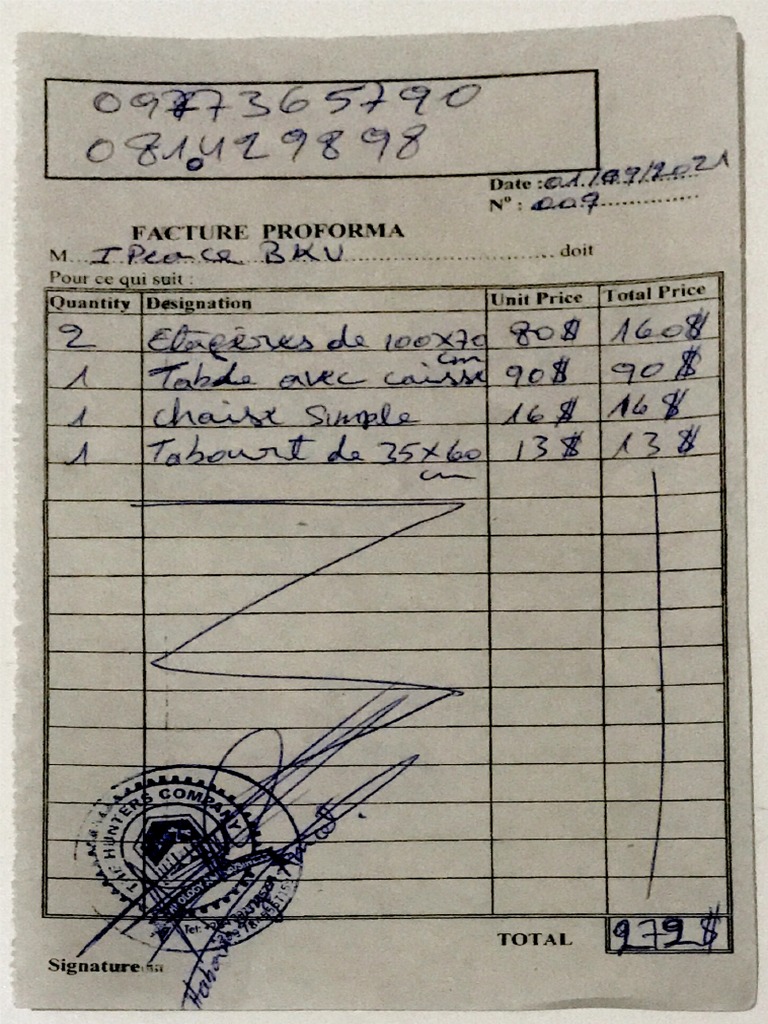 0977365790
081.429898
Date : 01/09/2021
N° : 009
FACTURE PROFORMA
M... I Peace BKV ... doit
Pour ce qui suit :
Quantity Designation Unit Price Total Price
2 Etagères de 100x70 cm 80$ 160$
1 Table avec caisse 90$ 90$
1 chaise Simple 16$ 16$
1 Tabouret de 35x60 cm 13$ 13$
THE HUNTERS COMPANY
Tel:
TOTAL 279$
Signature